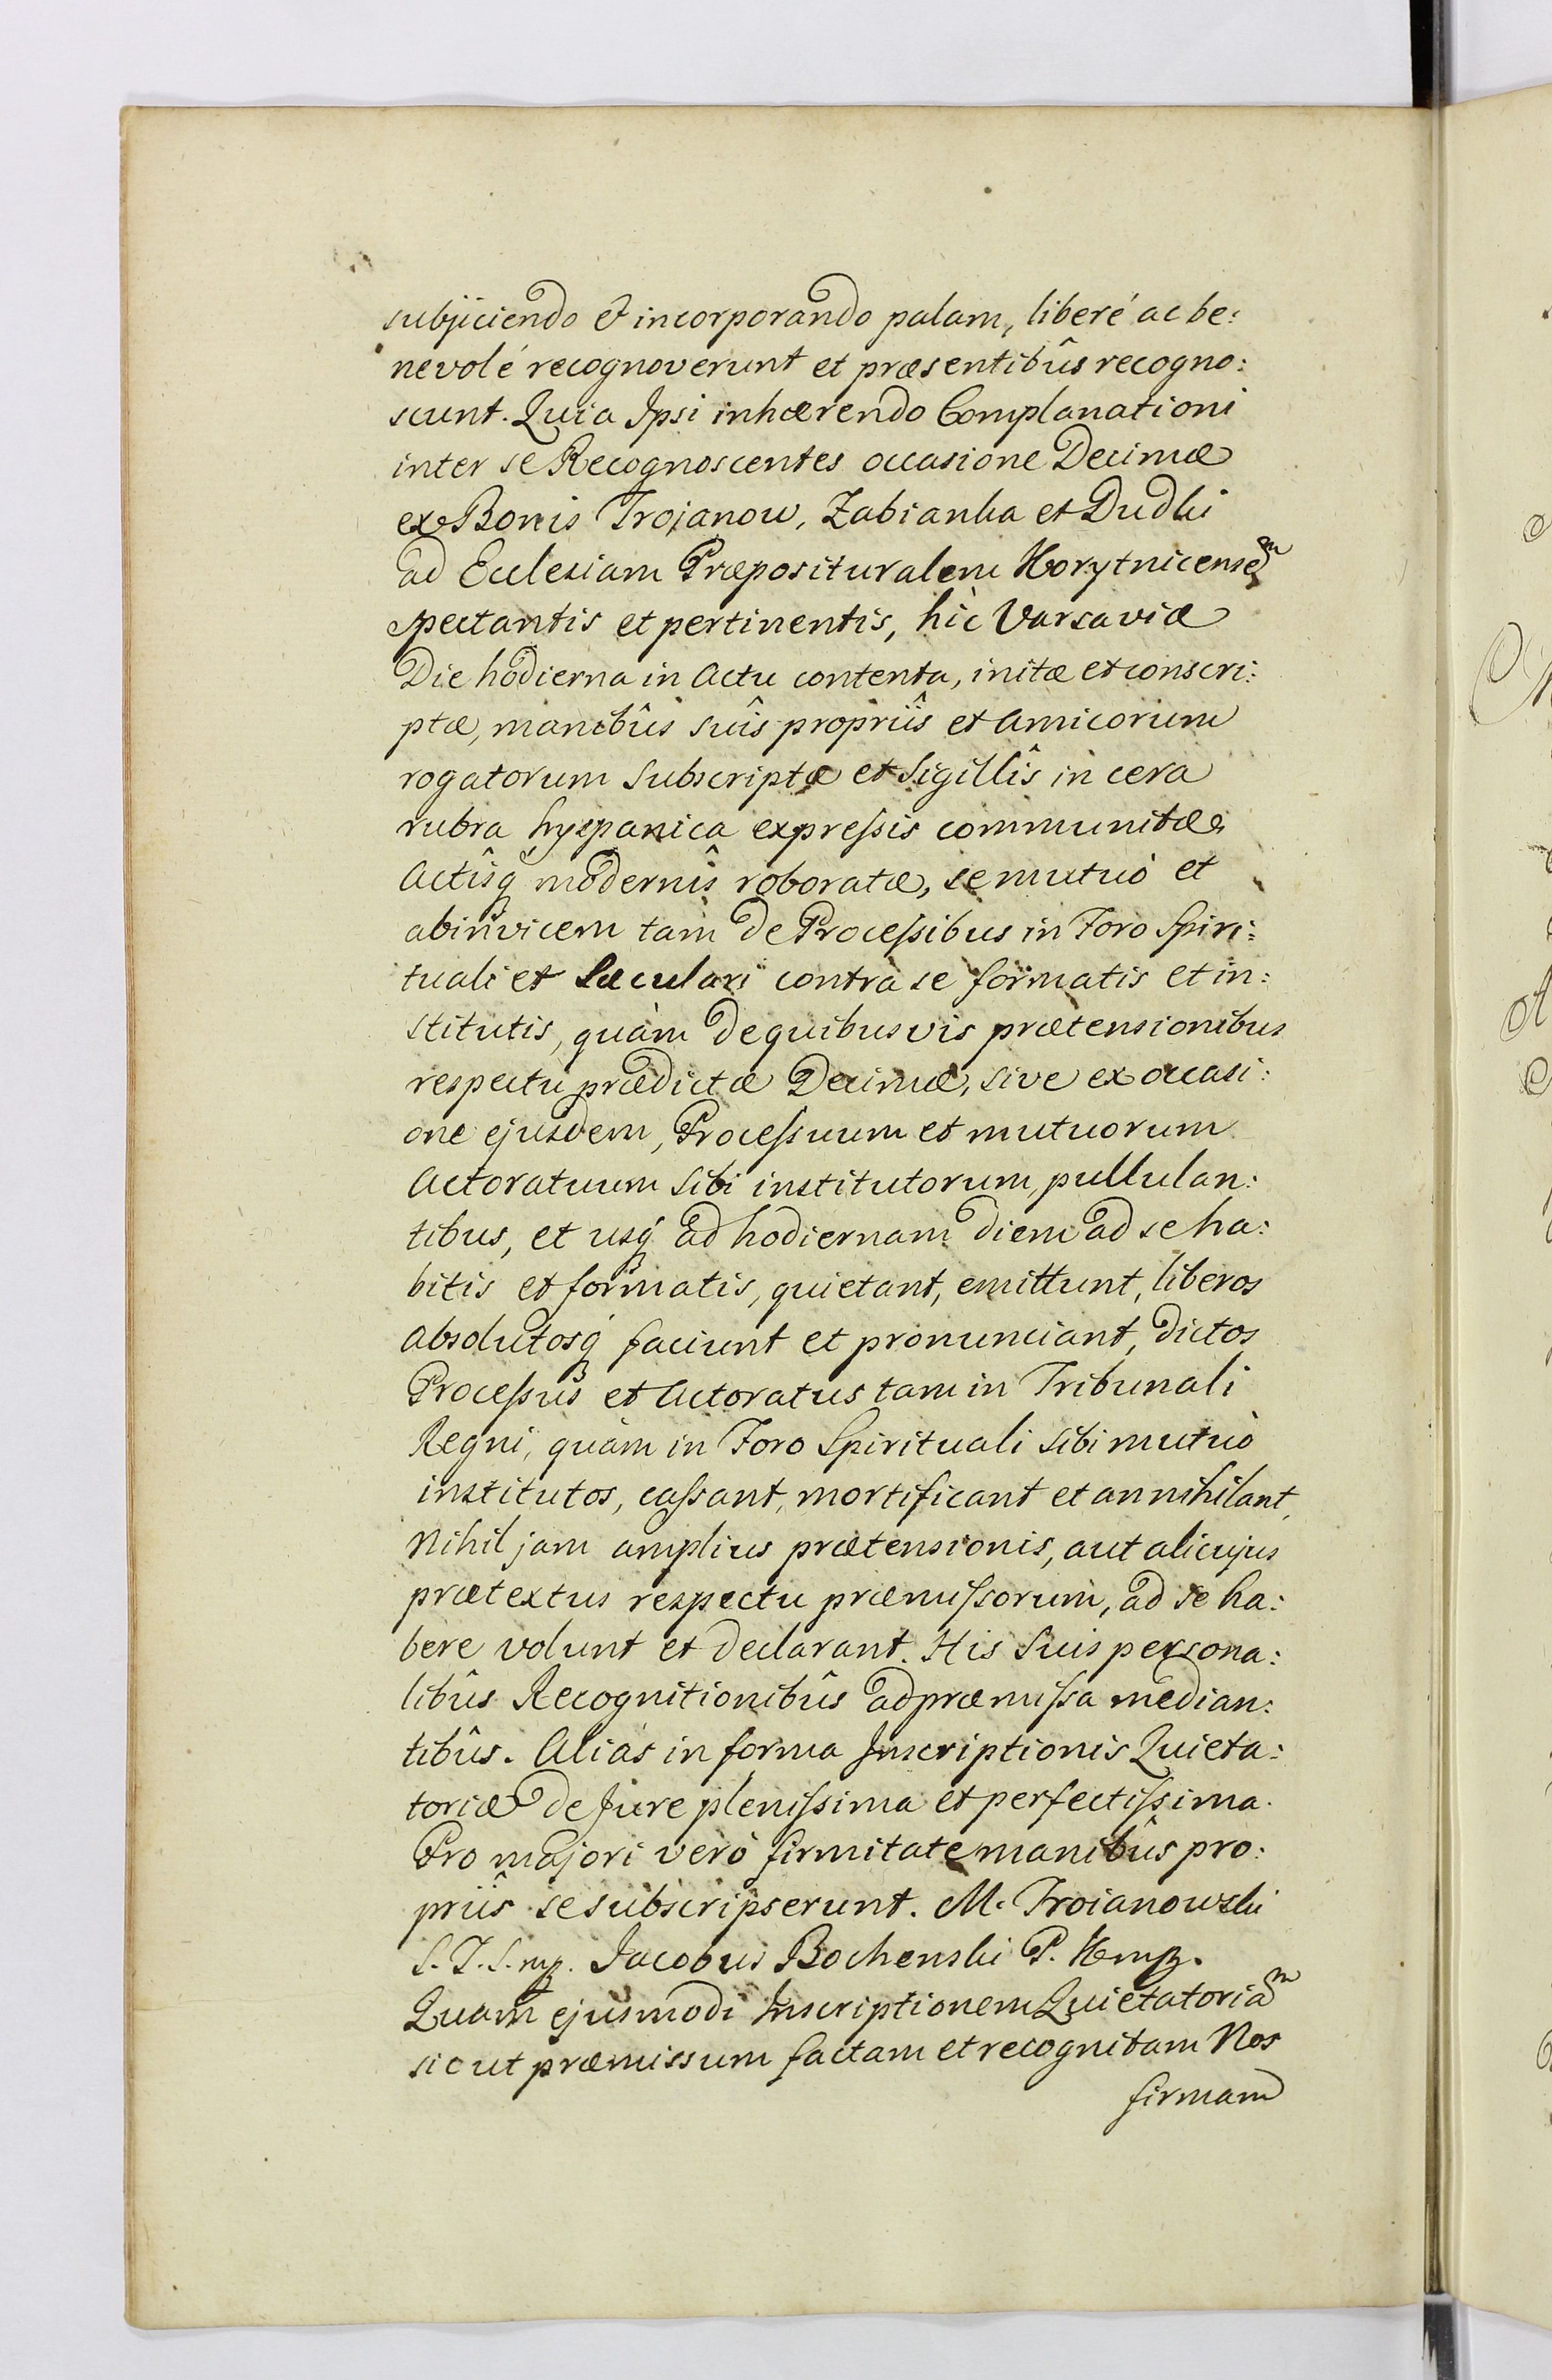 subjiciendo & incorporando palam, liberè ac be:
nevolè recognoverunt et præsentibûs recogno:
scunt. Quia Ipsi inhærendo Complanationi
inter se Recognoscentes occasione Decimæ
ex Bonis Trojanow, Zabianka et Dudki
ad Ecclesiam Præposituralem Korytnicensem
spectantis et pertinentis, hìc Varsaviæ
Die hodierna in Actu contenta, initæ et conscri:
ptæ, manibûs suîs propriîs et Amicorum
rogatorum Subscriptæ et Sigillîs in cera
rubra hyspanica expressis communitæ
Actîsq́ modernîs roboratæ, se mutuò et
abinvicem tam de Processibus in Foro Spiri:
tuali et Sæculari contra se formatis et in:
stitutis, quàm de quibusvis prætensionibus
respectu prædictæ Decimæ, sive ex occasi:
one ejusdem, Processuum et mutuorum
Actoratuum Sibi institutorum, pullulan:
tibus, et usq́ ad hodiernam diem ad se ha:
bitis et formatis, quietant, emittunt, liberos
absolutosq́ faciunt et pronunciant, dictos
Processus et Actoratus tam in Tribunali
Regni, quàm in Foro Spirituali Sibi mutuò
institutos, cassant, mortificant et annihilant,
Nihil jam amplius prætensionis, aut alicujus
prætextus respectu præmissorum, ad se ha:
bere volunt et declarant. His Suis persona:
libûs Recognitionibûs ad præmissa median:
tibûs. Aliàs in forma Inscriptionis Quieta:
toriæ de Jure plenissima et perfectissima.
Pro majori verò firmitate manibûs pro:
priîs se subscripserunt. M. Troianowski
S. T. S. mp. Jacobus Bochenski P. K mp.
Quam ejusmodi Inscriptionem Quietatoriam
sic ut præmissum factam et recognitam Nos
firmam